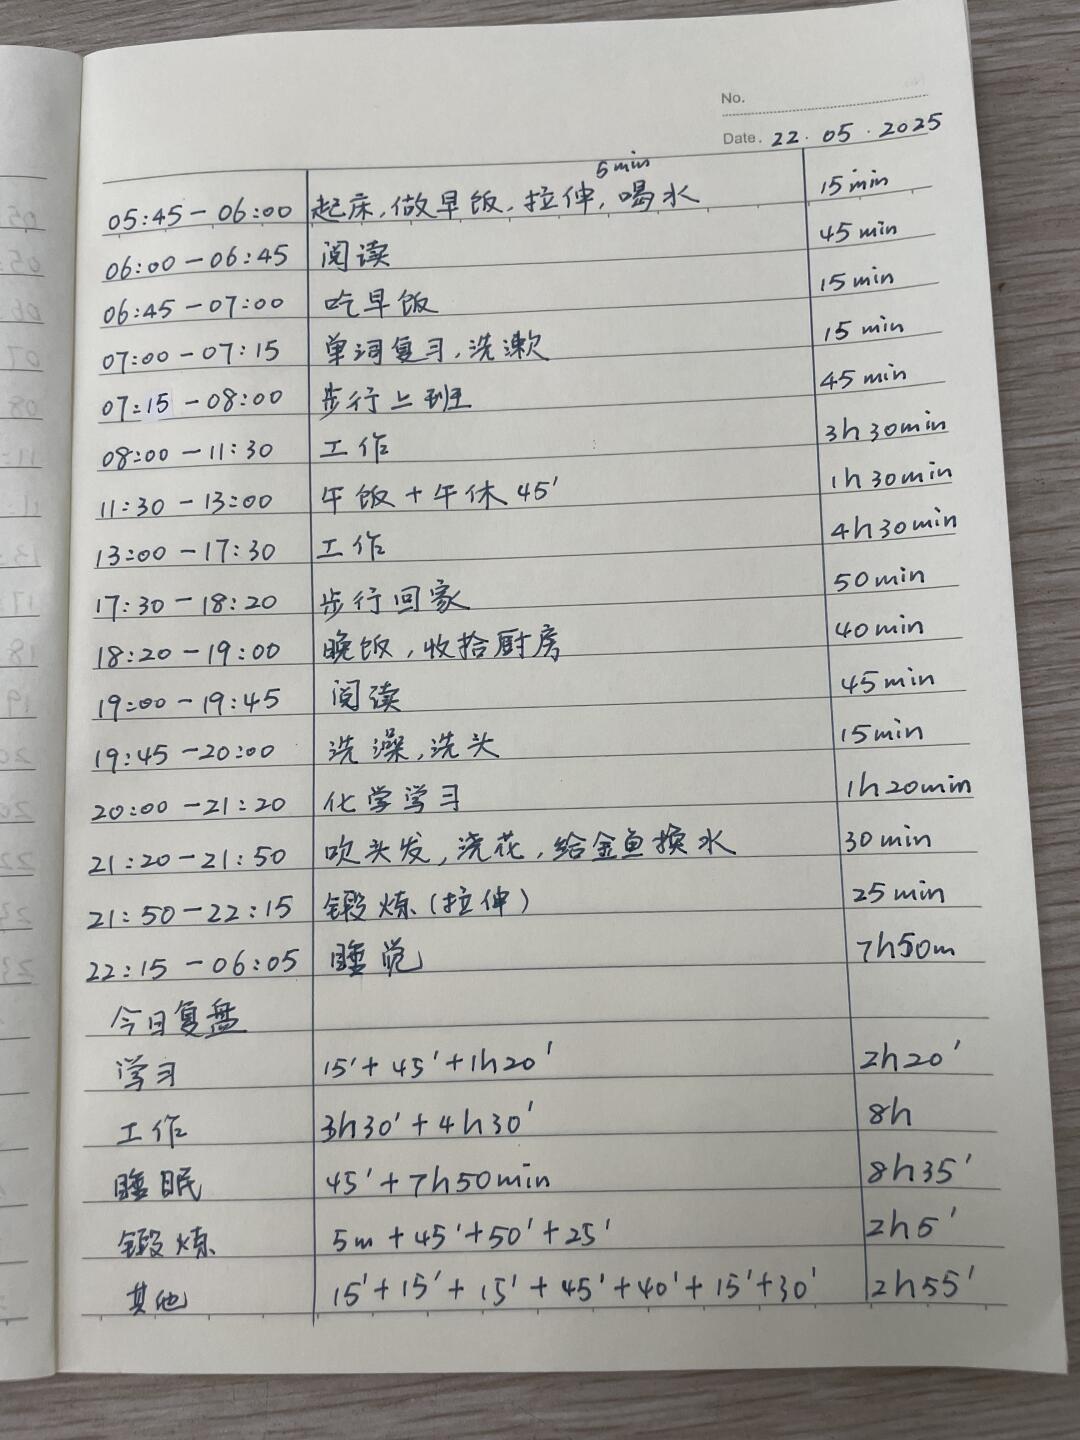 No.
Date. 22.05.2025
5min
05:45-06:00 起床,做早饭,拉伸,喝水 15min
06:00-06:45 阅读 45min
06:45-07:00 吃早饭 15min
07:00-07:15 单词复习,洗漱 15min
07:15-08:00 步行上班 45min
08:00-11:30 工作 3h30min
11:30-13:00 午饭+午休45' 1h30min
13:00-17:30 工作 4h30min
17:30-18:20 步行回家 50min
18:20-19:00 晚饭,收拾厨房 40min
19:00-19:45 阅读 45min
19:45-20:00 洗澡,洗头 15min
20:00-21:20 化学学习 1h20min
21:20-21:50 吹头发,浇花,给金鱼换水 30min
21:50-22:15 锻炼(拉伸) 25min
22:15-06:05 睡觉 7h50m
今日复盘
学习 15'+45'+1h20' 2h20'
工作 3h30'+4h30' 8h
睡眠 45'+7h50min 8h35'
锻炼 5m+45'+50'+25' 2h5'
其他 15'+15'+15'+45'+40'+15'+30' 2h55'